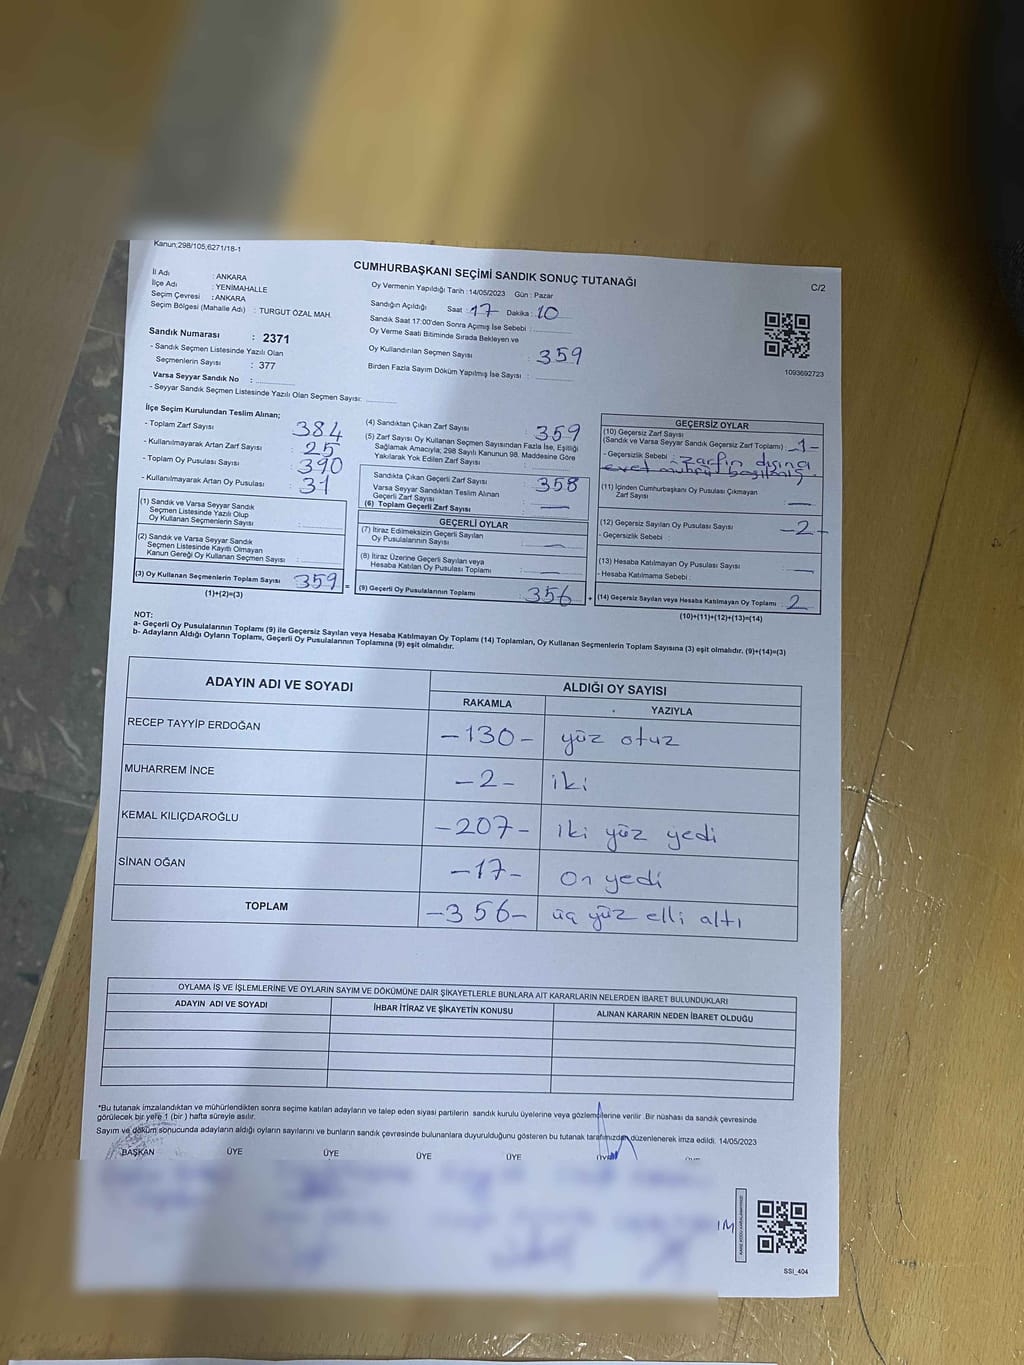 Kanun;298/105,6271/18-1
CUMHURBAŞKANI SEÇİMİ SANDIK SONUÇ TUTANAĞI
C/2
İl Adı : ANKARA
İlçe Adı : YENİMAHALLE
Seçim Çevresi : ANKARA
Seçim Bölgesi (Mahalle Adı) : TURGUT ÖZAL MAH.
Sandık Numarası : 2371
- Sandık Seçmen Listesinde Yazılı Olan
Seçmenlerin Sayısı : 377
Varsa Seyyar Sandık No :
- Seyyar Sandık Seçmen Listesinde Yazılı Olan Seçmen Sayısı:
Oy Vermenin Yapıldığı Tarih : 14/05/2023 Gün : Pazar
Sandığın Açıldığı Saat : 17 Dakika : 10
Sandık Saat 17:00'den Sonra Açımış İse Sebebi :
Oy Verme Saati Bitiminde Sırada Bekleyen ve
Oy Kullandırılan Seçmen Sayısı : 359
Birden Fazla Sayım Döküm Yapılmış İse Sayısı :
1093692723
İlçe Seçim Kurulundan Teslim Alınan;
- Toplam Zarf Sayısı 384
- Kullanılmayarak Artan Zarf Sayısı 25
- Toplam Oy Pusulası Sayısı 390
- Kullanılmayarak Artan Oy Pusulası 31
(1) Sandık ve Varsa Seyyar Sandık
Seçmen Listesinde Yazılı Olup
Oy Kullanan Seçmenlerin Sayısı :
(2) Sandık ve Varsa Seyyar Sandık
Seçmen Listesinde Kayıtlı Olmayan
Kanun Gereği Oy Kullanan Seçmen Sayısı :
(3) Oy Kullanan Seçmenlerin Toplam Sayısı 359 =
(1)+(2)=(3)
(4) Sandıktan Çıkan Zarf Sayısı : 359
(5) Zarf Sayısı Oy Kullanan Seçmen Sayısından Fazla İse, Eşitliği
Sağlamak Amacıyla; 298 Sayılı Kanunun 98. Maddesine Göre
Yakılarak Yok Edilen Zarf Sayısı :
Sandıkta Çıkan Geçerli Zarf Sayısı : 358
Varsa Seyyar Sandıktan Teslim Alınan
Geçerli Zarf Sayısı : —
(6) Toplam Geçerli Zarf Sayısı :
GEÇERLİ OYLAR
(7) İtiraz Edilmeksizin Geçerli Sayılan
Oy Pusulalarının Sayısı : —
(8) İtiraz Üzerine Geçerli Sayılan veya
Hesaba Katılan Oy Pusulası Toplamı : —
(9) Geçerli Oy Pusulalarının Toplamı : 356 +
GEÇERSİZ OYLAR
(10) Geçersiz Zarf Sayısı
(Sandık ve Varsa Seyyar Sandık Geçersiz Zarf Toplamı) : -1-
- Geçersizlik Sebebi : zarfın dışına
evet mührü basılmış
(11) İçinden Cumhurbaşkanı Oy Pusulası Çıkmayan
Zarf Sayısı : —
(12) Geçersiz Sayılan Oy Pusulası Sayısı : -2-
- Geçersizlik Sebebi :
(13) Hesaba Katılmayan Oy Pusulası Sayısı : —
- Hesaba Katılmama Sebebi :
(14) Geçersiz Sayılan veya Hesaba Katılmayan Oy Toplamı : 2
(10)+(11)+(12)+(13)=(14)
NOT:
a- Geçerli Oy Pusulalarının Toplamı (9) ile Geçersiz Sayılan veya Hesaba Katılmayan Oy Toplamı (14) Toplamları, Oy Kullanan Seçmenlerin Toplam Sayısına (3) eşit olmalıdır. (9)+(14)=(3)
b- Adayların Aldığı Oyların Toplamı, Geçerli Oy Pusulalarının Toplamına (9) eşit olmalıdır.
ADAYIN ADI VE SOYADI ALDIĞI OY SAYISI
RAKAMLA YAZIYLA
RECEP TAYYİP ERDOĞAN -130- yüz otuz
MUHARREM İNCE -2- iki
KEMAL KILIÇDAROĞLU -207- iki yüz yedi
SİNAN OĞAN -17- on yedi
TOPLAM -356- üç yüz elli altı
OYLAMA İŞ VE İŞLEMLERİNE VE OYLARIN SAYIM VE DÖKÜMÜNE DAİR ŞİKAYETLERLE BUNLARA AİT KARARLARIN NELERDEN İBARET BULUNDUKLARI
ADAYIN ADI VE SOYADI İHBAR İTİRAZ VE ŞİKAYETİN KONUSU ALINAN KARARIN NEDEN İBARET OLDUĞU
*Bu tutanak imzalandıktan ve mühürlendikten sonra seçime katılan adayların ve talep eden siyasi partilerin sandık kurulu üyelerine veya gözlemcilerine verilir. Bir nüshası da sandık çevresinde
görülecek bir yere 1 (bir) hafta süreyle asılır.
Sayım ve döküm sonucunda adayların aldığı oyların sayılarını ve bunların sandık çevresinde bulunanlara duyurulduğunu gösteren bu tutanak tarafımızdan düzenlenerek imza edildi. 14/05/2023
BAŞKAN ÜYE ÜYE ÜYE ÜYE ÜYE
SSİ_404